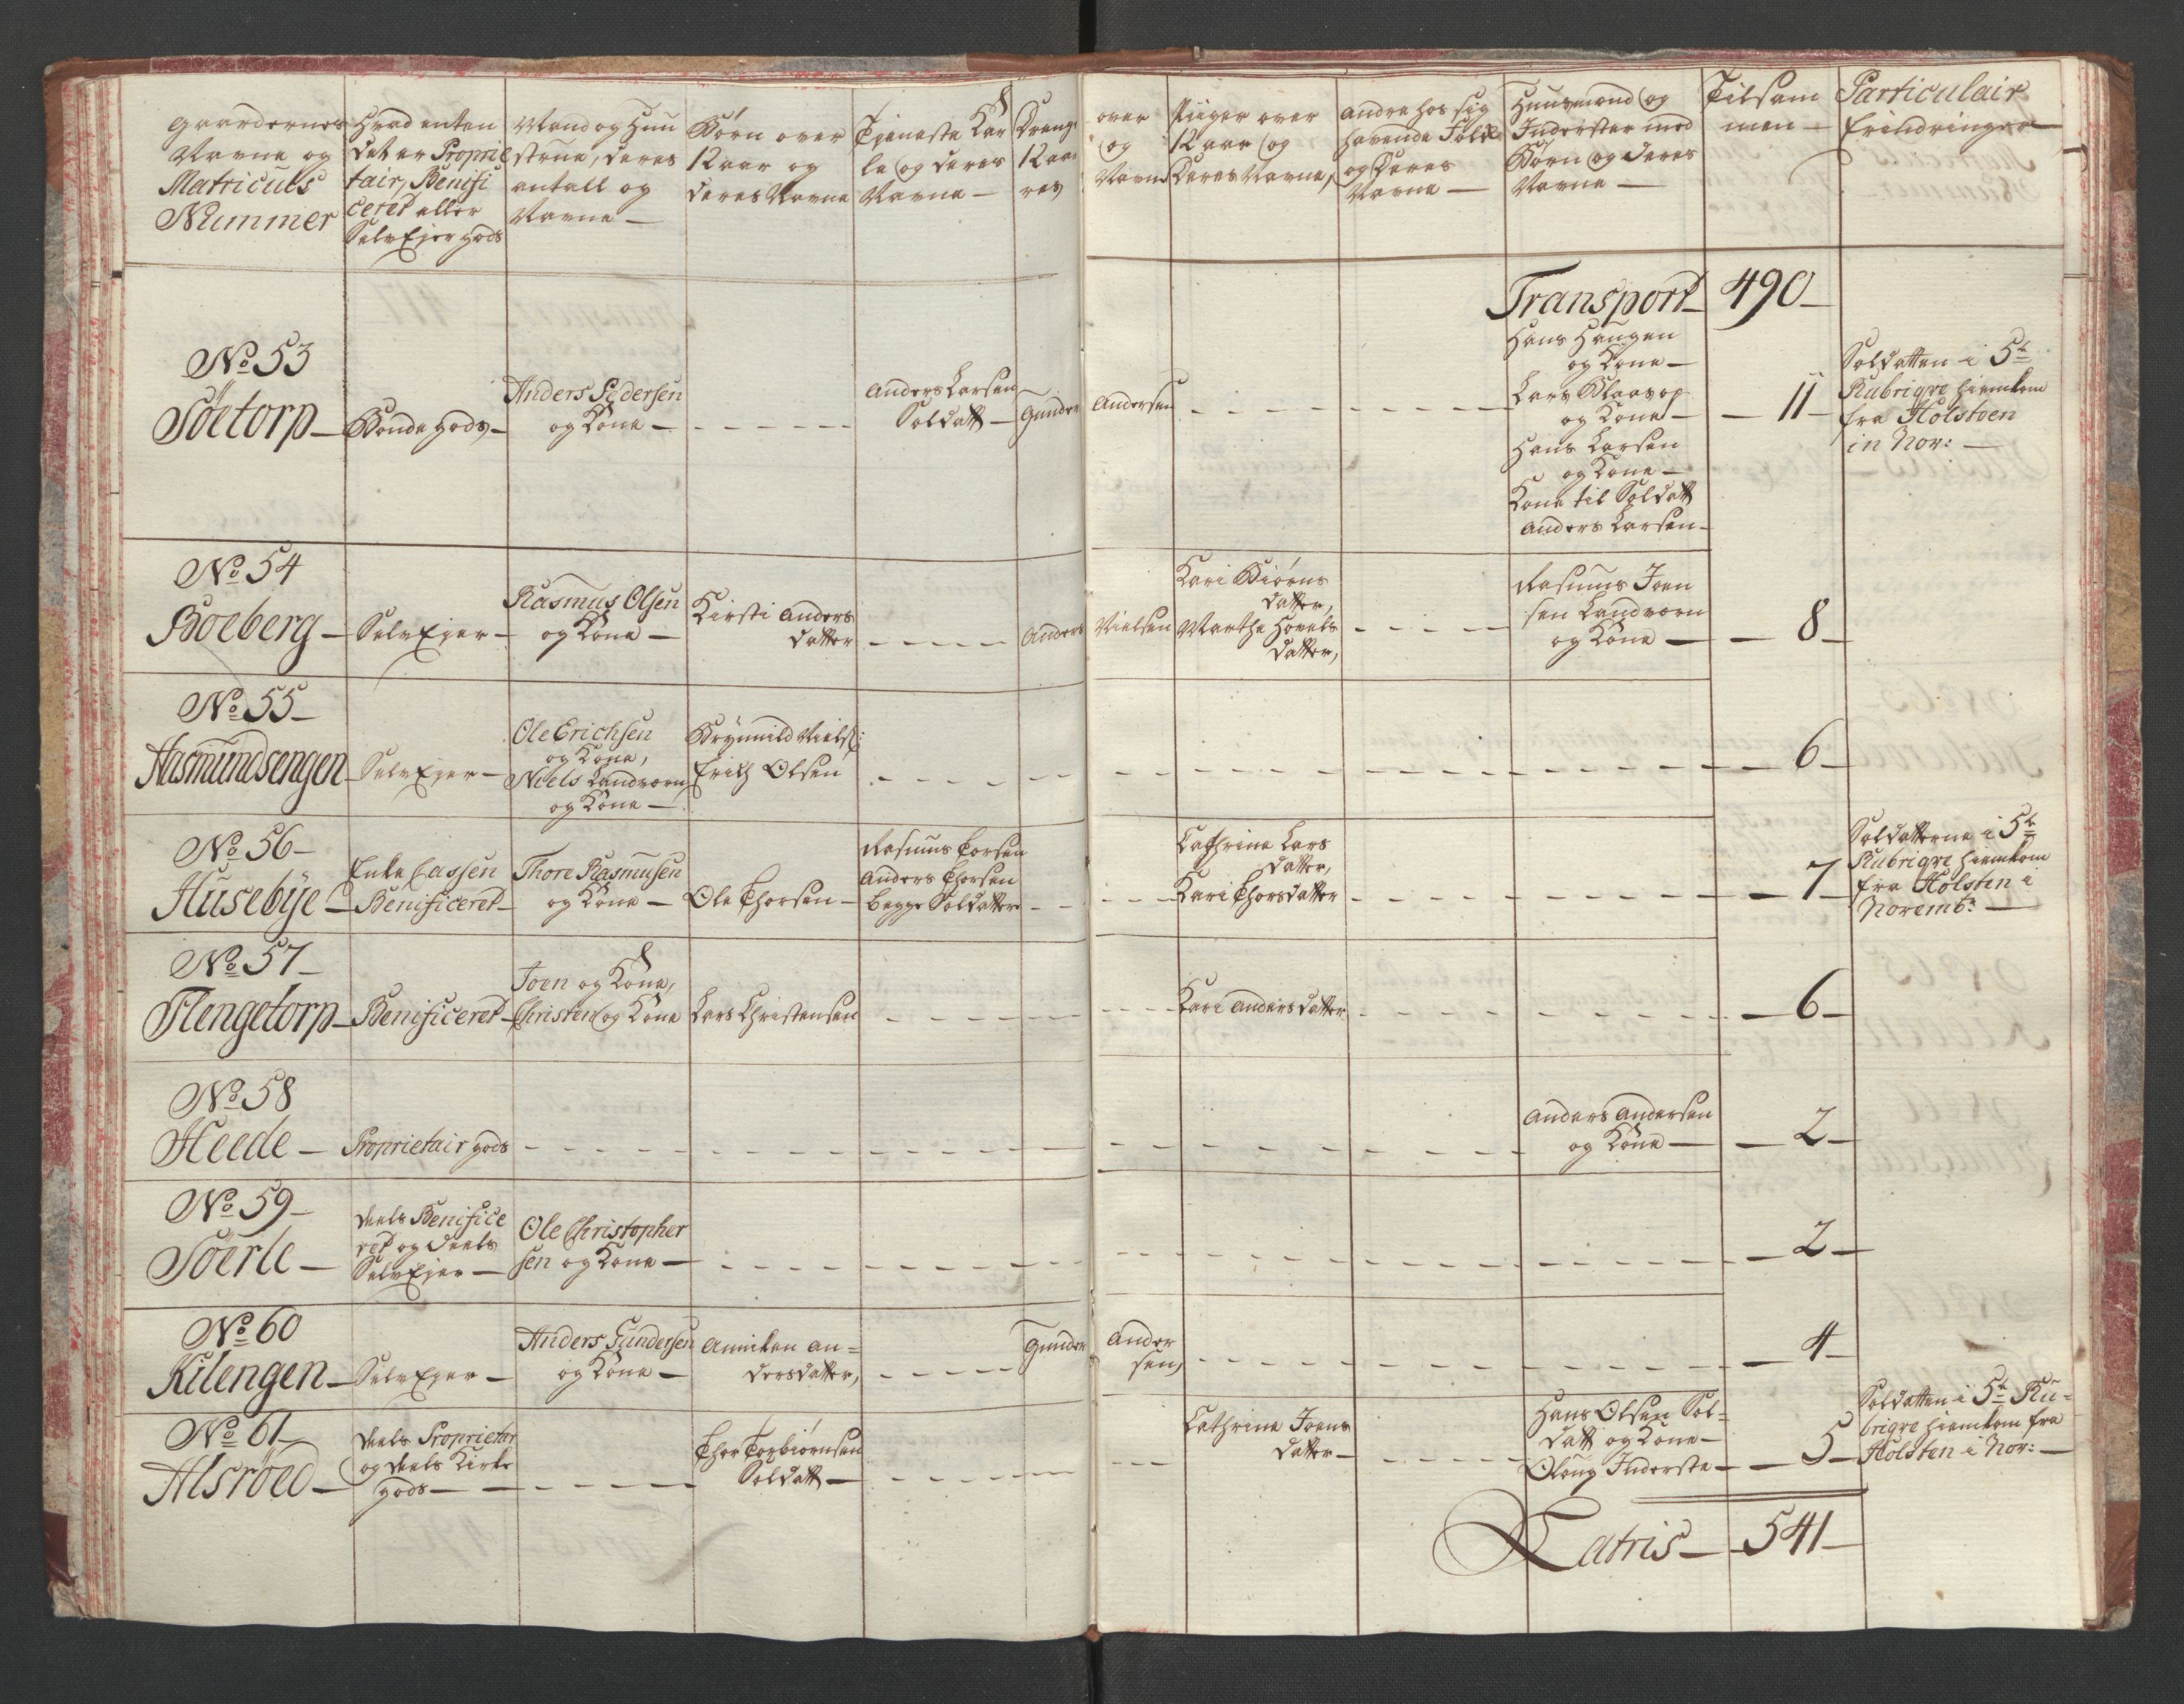 Gaardernes
Navne og
Matriculs
Nummer
Hvad enten
det er Proprie
tair, Benifi
ceret eller
SelvEjer gods
Mand og Huu
strue, deres
antall og
Navne —
Børn over
12 aar og
deres Navne
Tjeneste Kar
le og deres
Navne —
Drenge
12 aar
res
over
og
Navne
Piiger over
12 aar og
deres Navne,
andre hos sig
havende Folk
og deres
Navne —
Huusmænd og
Inderster med
Børn og deres
Navne —
Tilsam
men —
Particulair
Erindringer
Transport — 490 —
No 53
Söetorp —
Bonde gods —
Anders Pedersen
og Kone —
Anders Larsen
Soldatt —
Gunder
Andersen
Hans Haugen
og Kone —
Lars Klaavop
og Kone —
Hans Larsen
og Kone —
Kone til Soldatt
Anders Larsen —
11 —
Soldatten i 5te
Rubriqve hiemkom
fra Holsteen
in Nov: —
No 54
Boeberg —
SelvEjer —
Rasmus Olsen
og Kone —
Kirsti Anders
datter
Anders
Nielsen
Kari Biørns
datter,
Marthe Hovels
datter,
Rasmus Joen
sen Landvorn
og Kone —
8 —
No 55 —
Aasmundsengen —
SelvEjer —
Ole Erichsen
og Kone,
Niels Landvorn
og Kone —
Brynnild Niels:
Erich Olsen
6 —
No 56 —
Husebye —
Enke Cassen
Benificeret —
Thore Rasmusen
og Kone —
Ole Thorsen —
Rasmus Torsen
Anders Thorsen
begge Soldatter
Cathrine Lars
datter,
Kari Thorsdatter
7 —
Soldatterne i 5te
Rubriqve hiemkom
fra Holsten i
Novembr —
No 57 —
Flengetorp —
Benificeret —
Joen og Kone,
Christen og Kone
Lars Christensen
Kari Andersdatter
6 —
No 58
Heede —
Proprietair gods
Anders Andersen
og Kone —
2 —
No 59 —
Söerle —
deels Benifice
ret og deels
SelvEjer —
Ole Christopher
sen og Kone —
2 —
No 60
Kilengen —
SelvEjer —
Anders Gundersen
og Kone —
Anniken An=
dersdatter,
Gunder
Ander
sen,
4 —
No 61 —
Alsröed —
deels Proprietair
og deels Kirke
gods —
Thor Torbiørnsen
Soldatt —
Cathrine Joens
datter —
Hans Olsen Sol=
datt og Kone —
Oloug Inderste —
5 —
Soldatten i 5te Ru=
briqve hiemkom fra
Holsten i Nov: —
Latris — 541 —